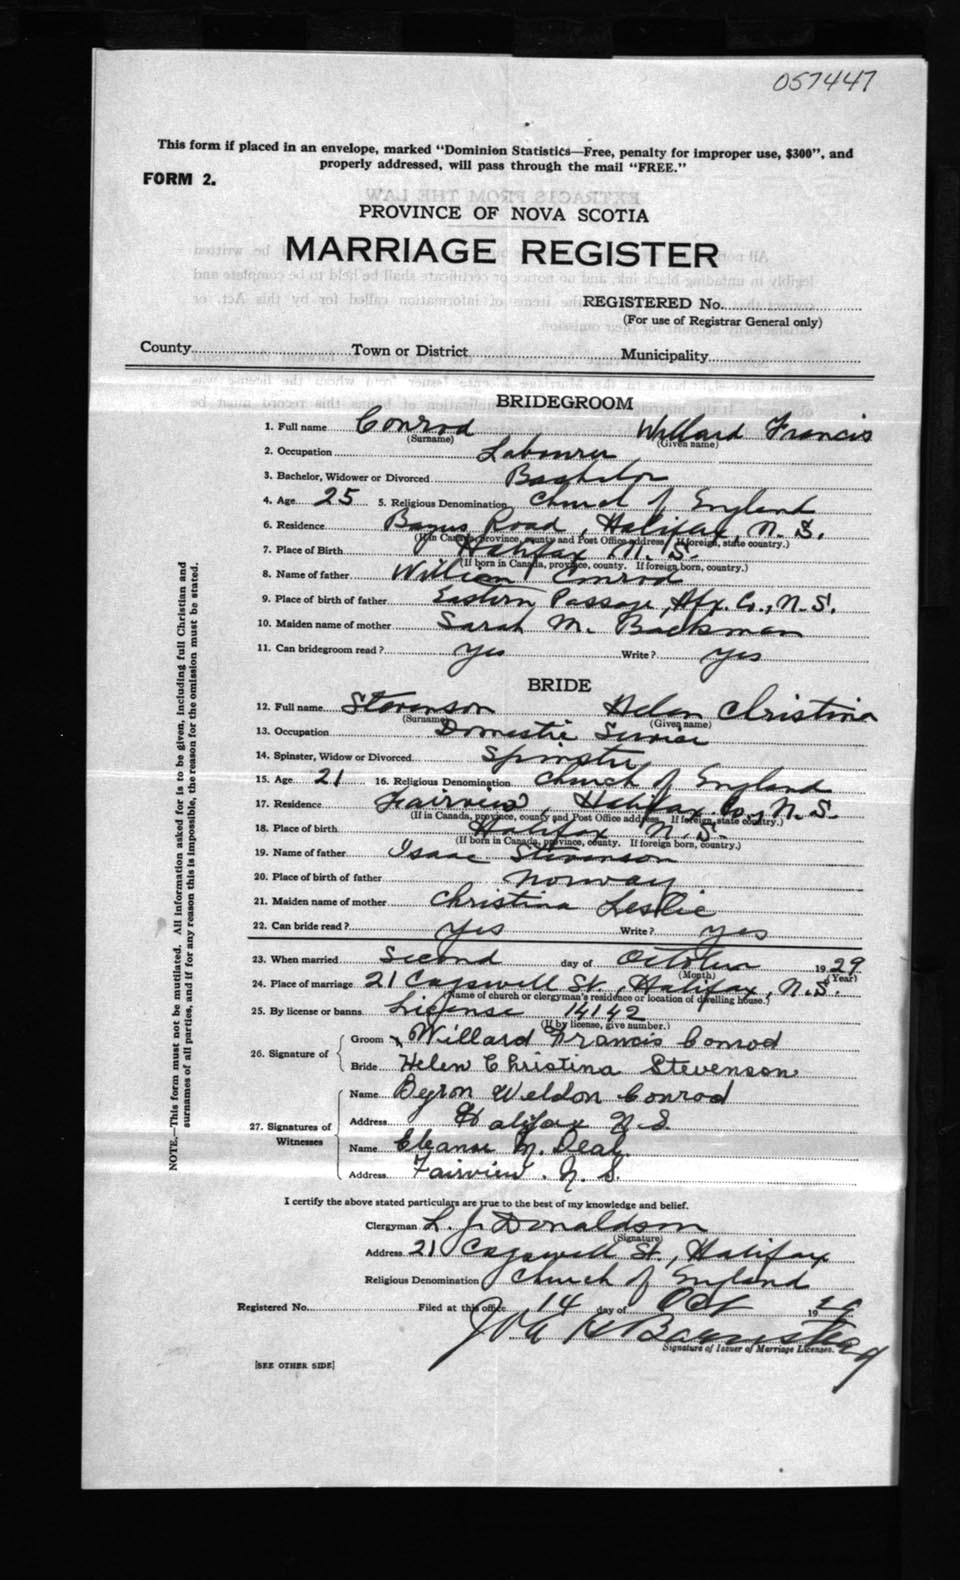 057447
This form if placed in an envelope, marked "Dominion Statistics—Free, penalty for improper use, $300", and
properly addressed, will pass through the mail "FREE."
FORM 2.
PROVINCE OF NOVA SCOTIA
MARRIAGE REGISTER
REGISTERED No.
(For use of Registrar General only)
County Town or District Municipality
BRIDEGROOM
1. Full name Conrod Willard Francis
(Surname) (Given name)
2. Occupation Labourer
3. Bachelor, Widower or Divorced Bachelor
4. Age 25 5. Religious Denomination Church of England
6. Residence Road, Halifax, N. S.
(If in Canada, province, county and Post Office address. If foreign, state country.)
7. Place of Birth Halifax N. S.
(If born in Canada, province, county. If foreign born, country.)
8. Name of father William Conrod
9. Place of birth of father Eastern Passage, Hfx. Co., N. S.
10. Maiden name of mother Sarah M. Backman
11. Can bridegroom read? yes Write? yes
BRIDE
12. Full name Stevenson Helen Christina
(Surname) (Given name)
13. Occupation Domestic Service
14. Spinster, Widow or Divorced Spinster
15. Age 21 16. Religious Denomination Church of England
17. Residence Fairview, Halifax Co., N. S.
(If in Canada, province, county and Post Office address. If foreign, state country.)
18. Place of birth Halifax N. S.
(If born in Canada, province, county. If foreign born, country.)
19. Name of father Isaac Stevenson
20. Place of birth of father Norway
21. Maiden name of mother Christina Leslie
22. Can bride read? yes Write? yes
23. When married Second day of October 1929
(Month) (Year)
24. Place of marriage 21 Cogswell St., Halifax, N. S.
(Name of church or clergyman's residence or location of dwelling house.)
25. By license or banns License 14142
(If by license, give number.)
26. Signature of
Groom x Willard Francis Conrod
Bride Helen Christina Stevenson
27. Signatures of Witnesses
Name Byron Weldon Conrod
Address Halifax N. S.
Name Eleanor M. Deal.
Address Fairview. N. S.
I certify the above stated particulars are true to the best of my knowledge and belief.
Clergyman L. J. Donaldson
(Signature)
Address 21 Cogswell St., Halifax
Religious Denomination Church of England
Registered No. Filed at this office 14 day of Oct 1929
Barnstead
Signature of Issuer of Marriage Licenses.
[SEE OTHER SIDE]
NOTE.—This form must not be mutilated. All information asked for is to be given, including full Christian and
surnames of all parties, and if for any reason this is impossible, the reason for the omission must be stated.